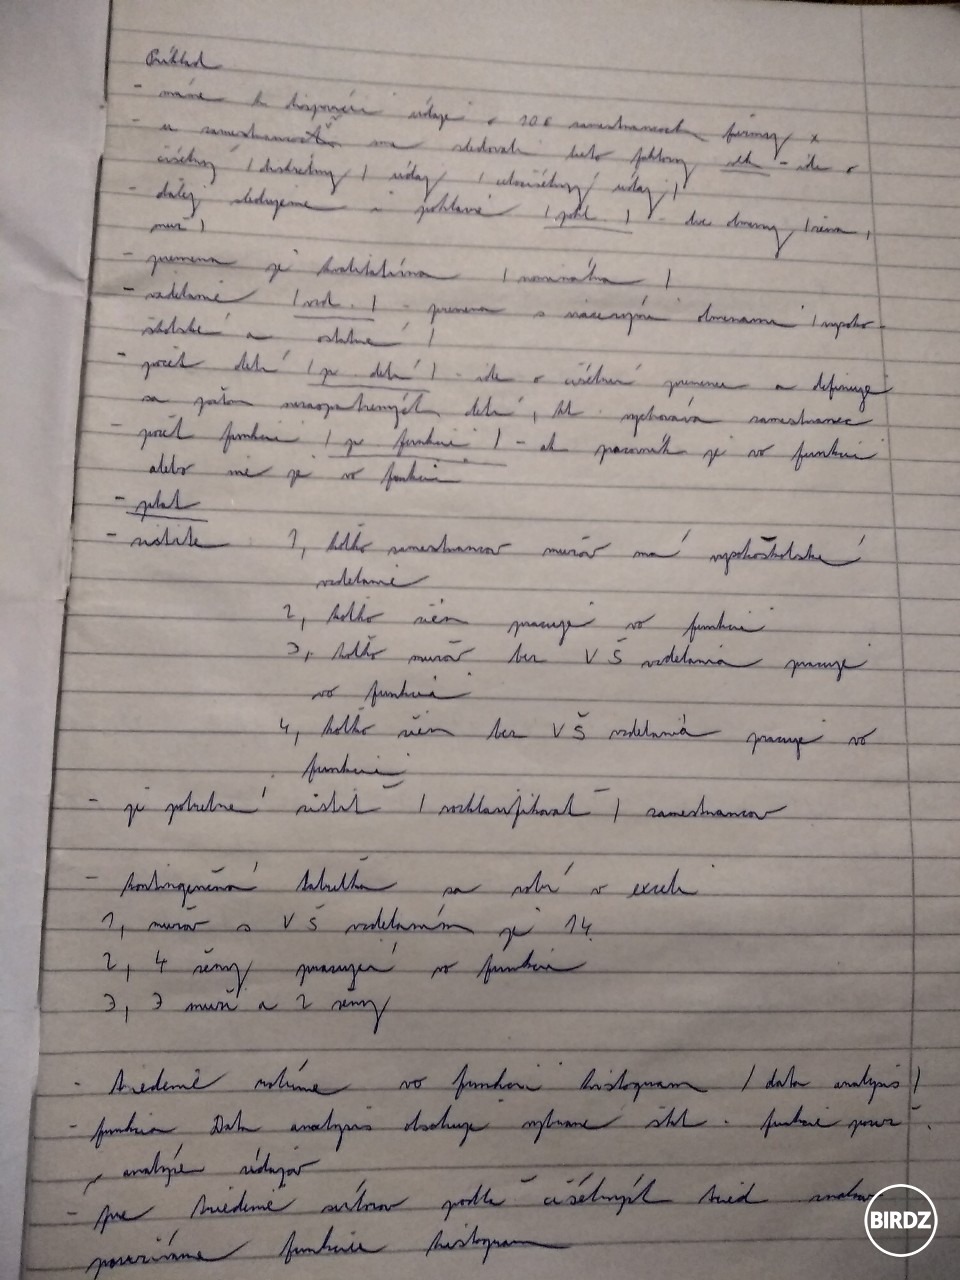 Príklad
- máme k dispozícii údaje o 106 zamestnancoch firmy x
- u zamestnancoch sa sledovali tieto faktory vek - ide o
číselný / diskrétny / údaj / celočíselný údaj /
- ďalej sledujeme i pohlavie / pohl. / - dve obmeny / žena,
muž /
- premena je kvalitatívna / nominálna /
- vzdelanie / vzd. / - premena s viacerými obmenami / vysoko-
školské a ostatné /
- počet detí / po detí / - ide o číselnú premenu a definuje
sa počtom nezaopatrených detí, kt. vychováva zamestnanec
- počet funkcií / po funkcií / - ak pracovník je vo funkcii
alebo nie je vo funkcii
- plat
- zistite 1, koľko zamestnancov mužov má vysokoškolské
vzdelanie
2, koľko žien pracuje vo funkcii
3, koľko mužov bez VŠ vzdelania pracuje
vo funkcii
4, koľko žien bez VŠ vzdelania pracuje vo
funkcii
- je potrebné zistiť / rozklasifikovať / zamestnancov
- kontingenčná tabuľka sa robí v exceli
1, mužov s VŠ vzdelaním je 14
2, 4 ženy pracujú vo funkcii
3, 3 muži a 2 ženy
- triedenie robíme vo funkcii histogram / data analysis /
- funkcia Data analysis obsahuje vybrané štat. funkcie
analýze údajov
- pre triedenie súborov podľa číselných tried znakov
používame funkciu histogram
BIRDZ